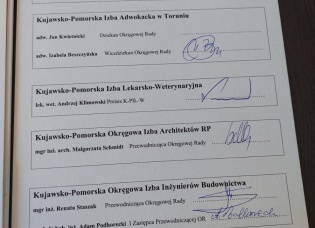 Kujawsko-Pomorska Izba Adwokacka w Toruniu
adw. Jan Kwietnicki Dziekan Okręgowej Rady
adw. Izabela Beszczyńska Wicedziekan Okręgowej Rady
Kujawsko-Pomorska Izba Lekarsko-Weterynaryjna
lek. wet. Andrzej Klimowski Prezes K-PIL-W
Kujawsko-Pomorska Okręgowa Izba Architektów RP
mgr inż. arch. Małgorzata Schmidt Przewodnicząca Okręgowej Rady
Kujawsko-Pomorska Okręgowa Izba Inżynierów Budownictwa
mgr inż. Renata Staszak Przewodnicząca Okręgowej Rady
inż. Adam Podhorecki I Zastępca Przewodniczącej OR